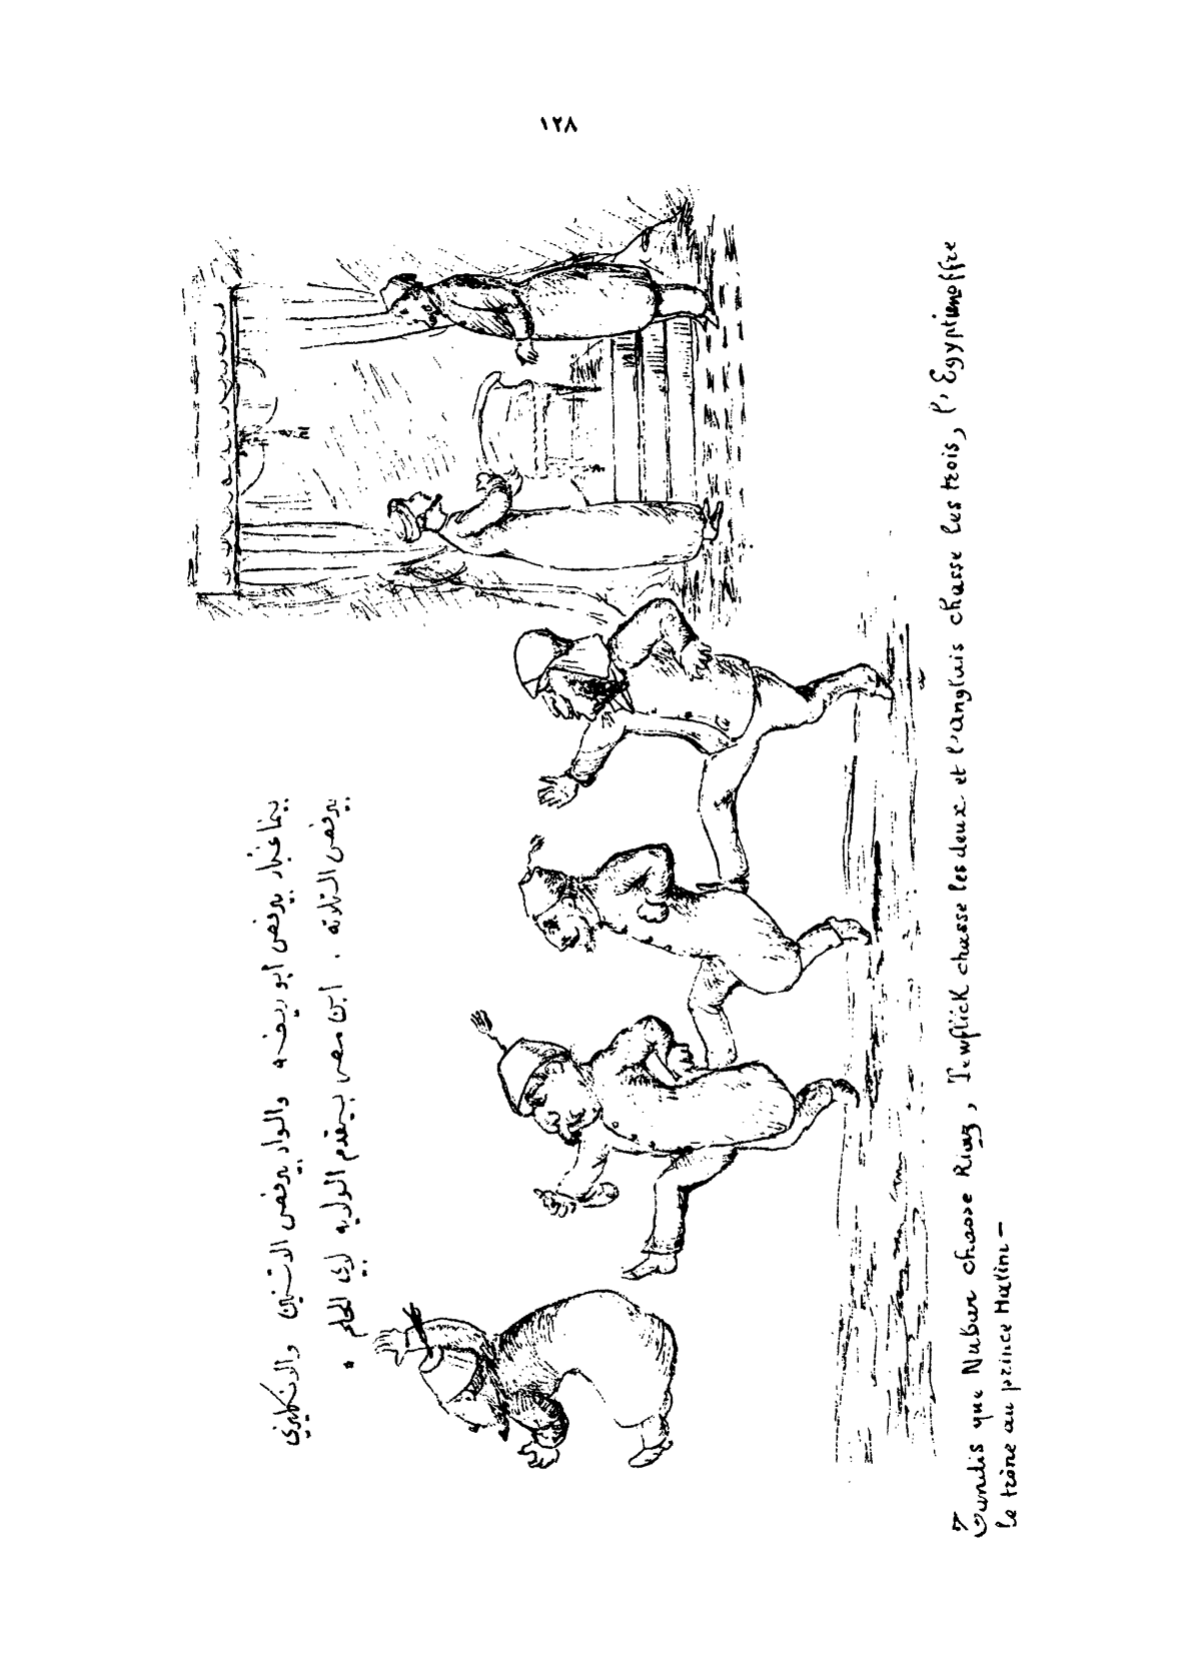 ١٢٨
بينما غبار يرفص أبو ريضه والواد يرفص الاتنين والانكليزي
يرفص التلاته . ابن مصر بيقدم الولايه لابي الحلم *
Tandis que Nubar chasse Riaz, Tewfick chasse les deux et l'anglais chasse les trois, l'Egyptien offre
le trône au prince Halim —